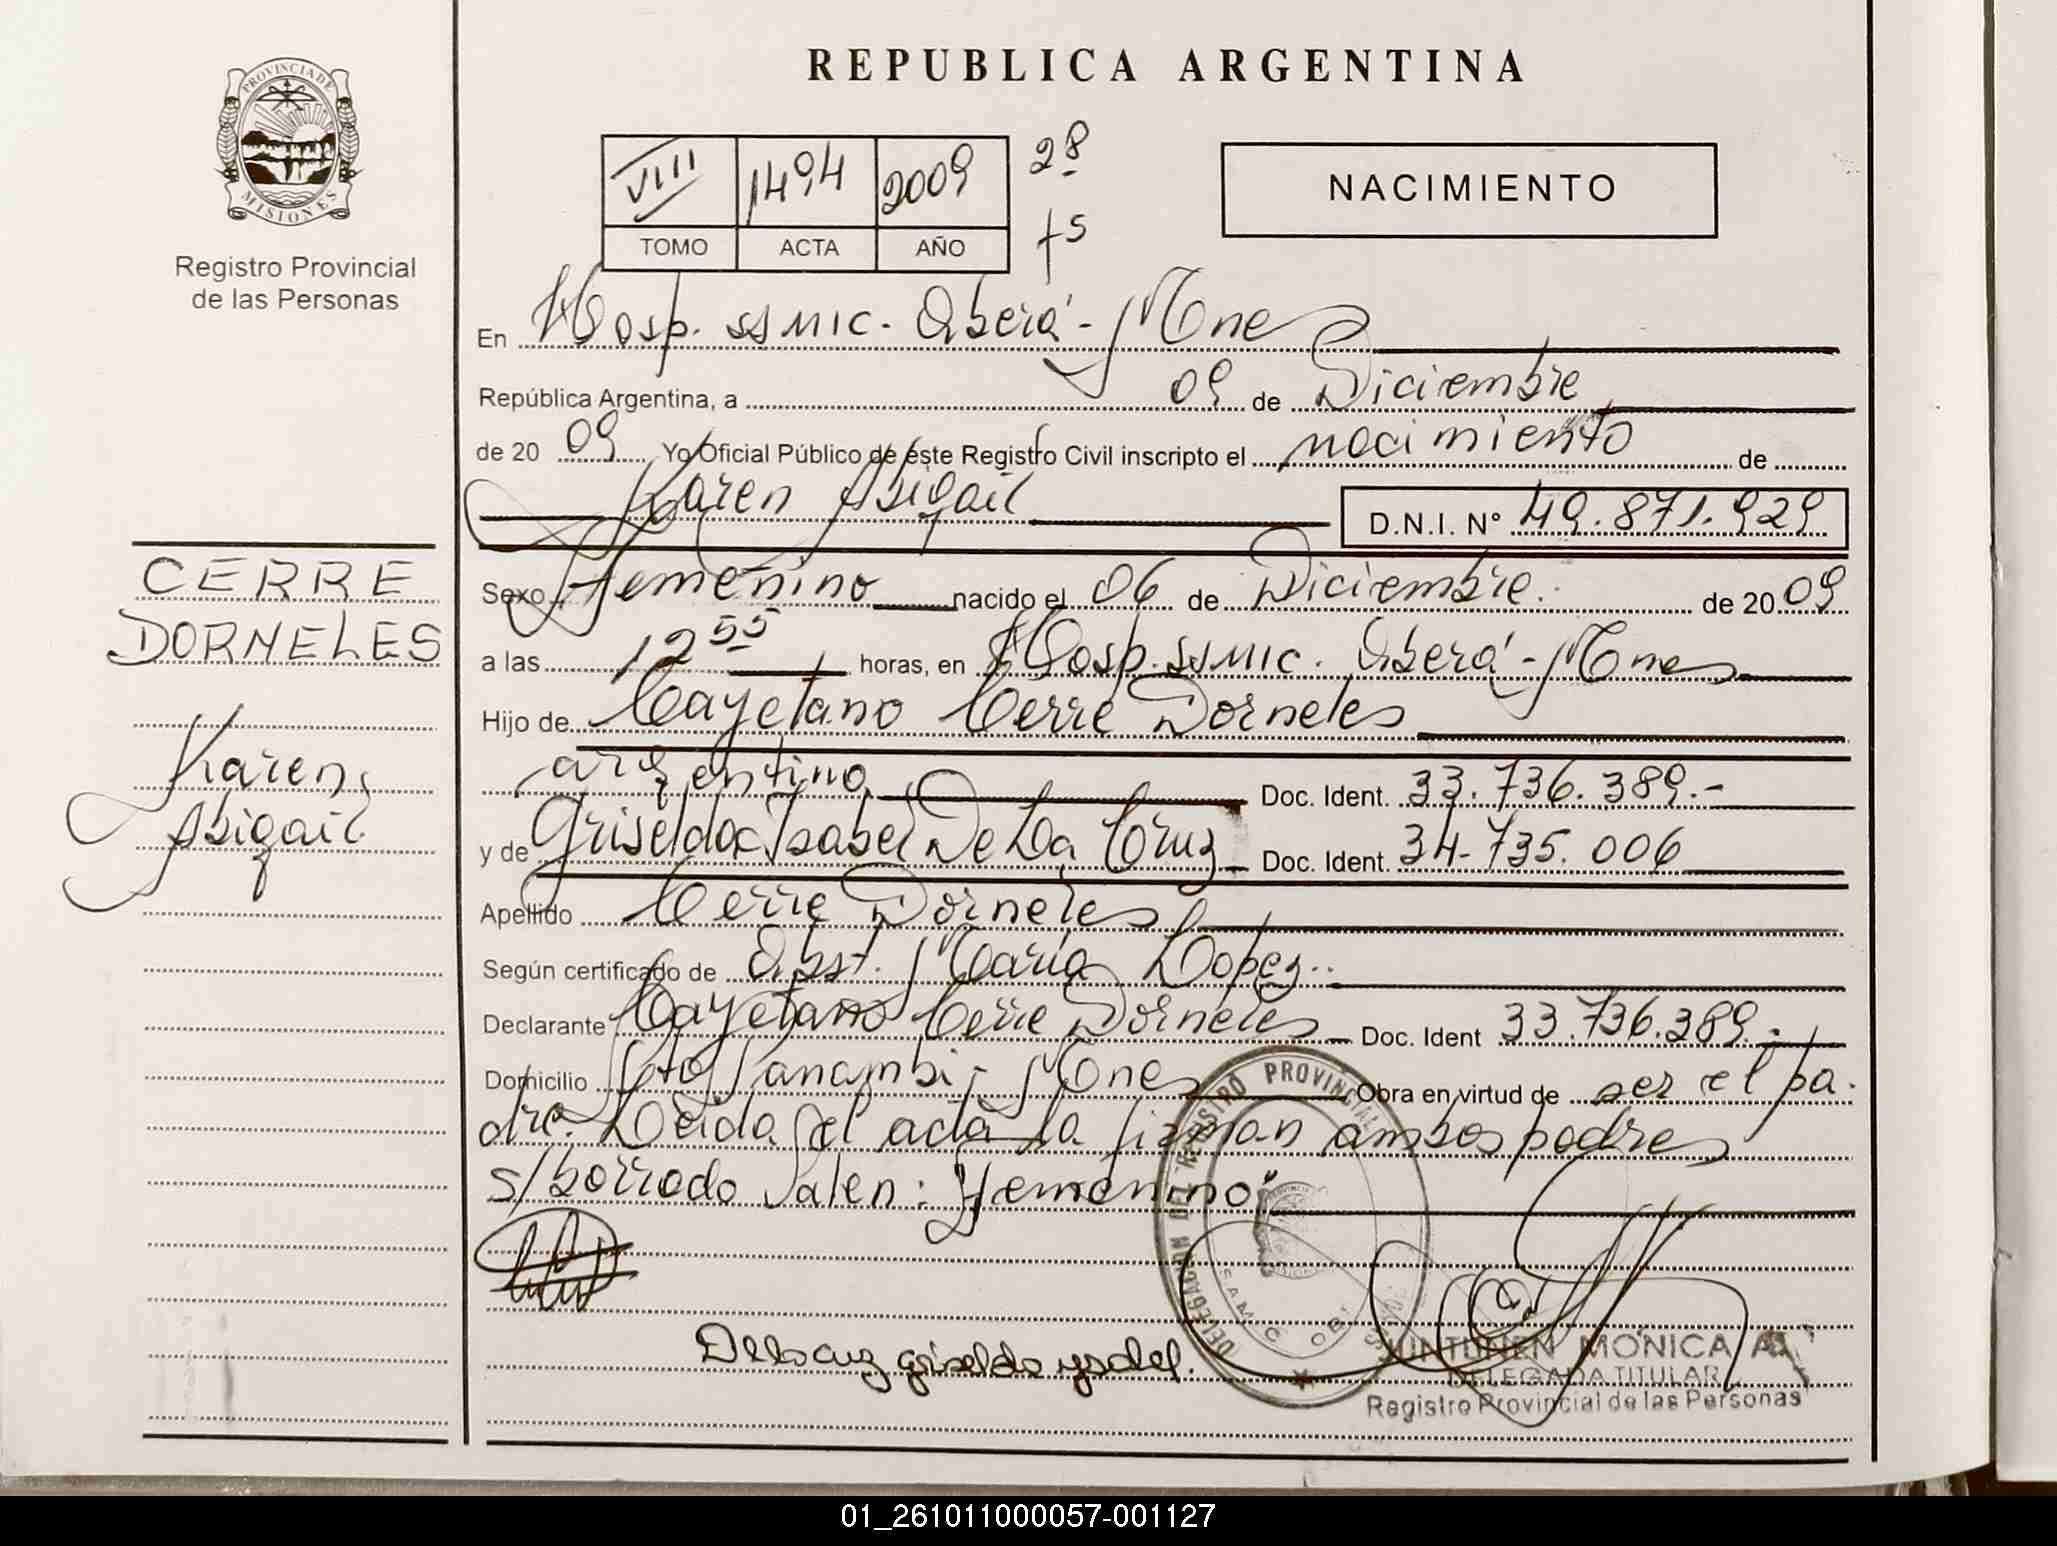 REPUBLICA ARGENTINA
PROVINCIA DE
MISIONES
Registro Provincial
de las Personas
VIII 1494 2009 28
TOMO ACTA AÑO f5
NACIMIENTO
En Hosp. SSMIC. Oberá - Mnes
República Argentina, a 09 de Diciembre
de 20 09 Yo Oficial Público de este Registro Civil inscripto el nacimiento de
Karen Abigail D.N.I. N° 49.871.929
CERRE
DORNELES
Karen
Abigail
Sexo Femenino nacido el 06 de Diciembre. de 20 09
a las 12 55 horas, en Hosp. SSMIC. Oberá - Mnes
Hijo de Cayetano Cerre Dorneles
argentino Doc. Ident. 33.736.389.-
y de Griselda Isabel De La Cruz Doc. Ident. 34.735.006
Apellido Cerre Dorneles
Según certificado de Obst. María Lopez..
Declarante Cayetano Cerre Dorneles Doc. Ident 33.736.389.-
Domicilio Pto Panambí - Mnes Obra en virtud de ser el pa-
dre. Leida el acta la firman ambos padres
s/borrado Valen: "Femenino"
De la cruz griselda ysabel.
DELEGACION DEL REGISTRO PROVINCIAL
JUNTUNEN MONICA A.
DELEGADA TITULAR
Registro Provincial de las Personas
01_261011000057-001127